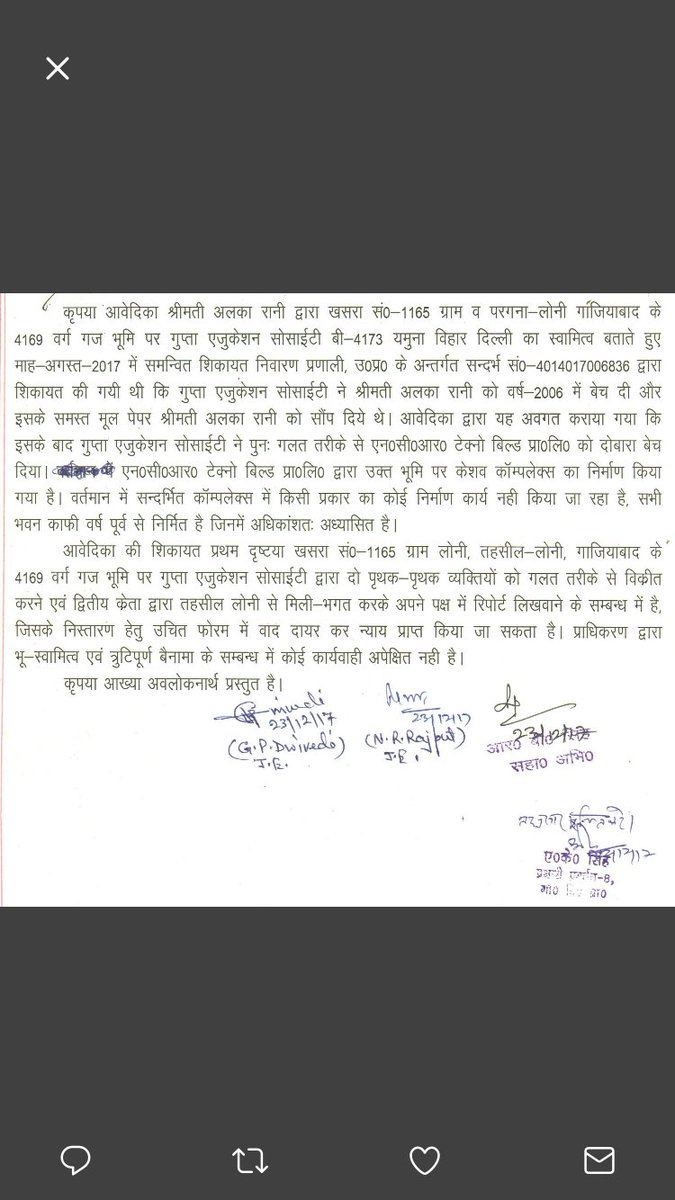 कृपया आवेदिका श्रीमती अलका रानी द्वारा खसरा सं०-1165 ग्राम व परगना-लोनी गाजियाबाद के
4169 वर्ग गज भूमि पर गुप्ता एजुकेशन सोसाईटी बी-4173 यमुना विहार दिल्ली का स्वामित्व बताते हुए
माह-अगस्त-2017 में समन्वित शिकायत निवारण प्रणाली, उ०प्र० के अन्तर्गत सन्दर्भ सं०-4014017006836 द्वारा
शिकायत की गयी थी कि गुप्ता एजुकेशन सोसाईटी ने श्रीमती अलका रानी को वर्ष-2006 में बेच दी और
इसके समस्त मूल पेपर श्रीमती अलका रानी को सौंप दिये थे। आवेदिका द्वारा यह अवगत कराया गया कि
इसके बाद गुप्ता एजुकेशन सोसाईटी ने पुनः गलत तरीके से एन०सी०आर० टेक्नो बिल्ड प्रा०लि० को दोबारा बेच
दिया। एन०सी०आर० टेक्नो बिल्ड प्रा०लि० द्वारा उक्त भूमि पर केशव कॉम्पलेक्स का निर्माण किया
गया है। वर्तमान में सन्दर्भित कॉम्पलेक्स में किसी प्रकार का कोई निर्माण कार्य नही किया जा रहा है, सभी
भवन काफी वर्ष पूर्व से निर्मित है जिनमें अधिकांशतः अध्यासित है।
आवेदिका की शिकायत प्रथम दृष्टया खसरा सं०-1165 ग्राम लोनी, तहसील-लोनी, गाजियाबाद के
4169 वर्ग गज भूमि पर गुप्ता एजुकेशन सोसाईटी द्वारा दो पृथक-पृथक व्यक्तियों को गलत तरीके से विकीत
करने एवं द्वितीय केता द्वारा तहसील लोनी से मिली-भगत करके अपने पक्ष में रिपोर्ट लिखवाने के सम्बन्ध में है,
जिसके निस्तारण हेतु उचित फोरम में वाद दायर कर न्याय प्राप्त किया जा सकता है। प्राधिकरण द्वारा
भू-स्वामित्व एवं त्रुटिपूर्ण बैनामा के सम्बन्ध में कोई कार्यवाही अपेक्षित नही है।
कृपया आख्या अवलोकनार्थ प्रस्तुत है।
23/12/17
(G.P.Dwivedi)
J.E.
23/12/17
(N.R.Rajput)
J.E.
23/12/17
आर०
सहा० अभि०
ए०के० सिंह